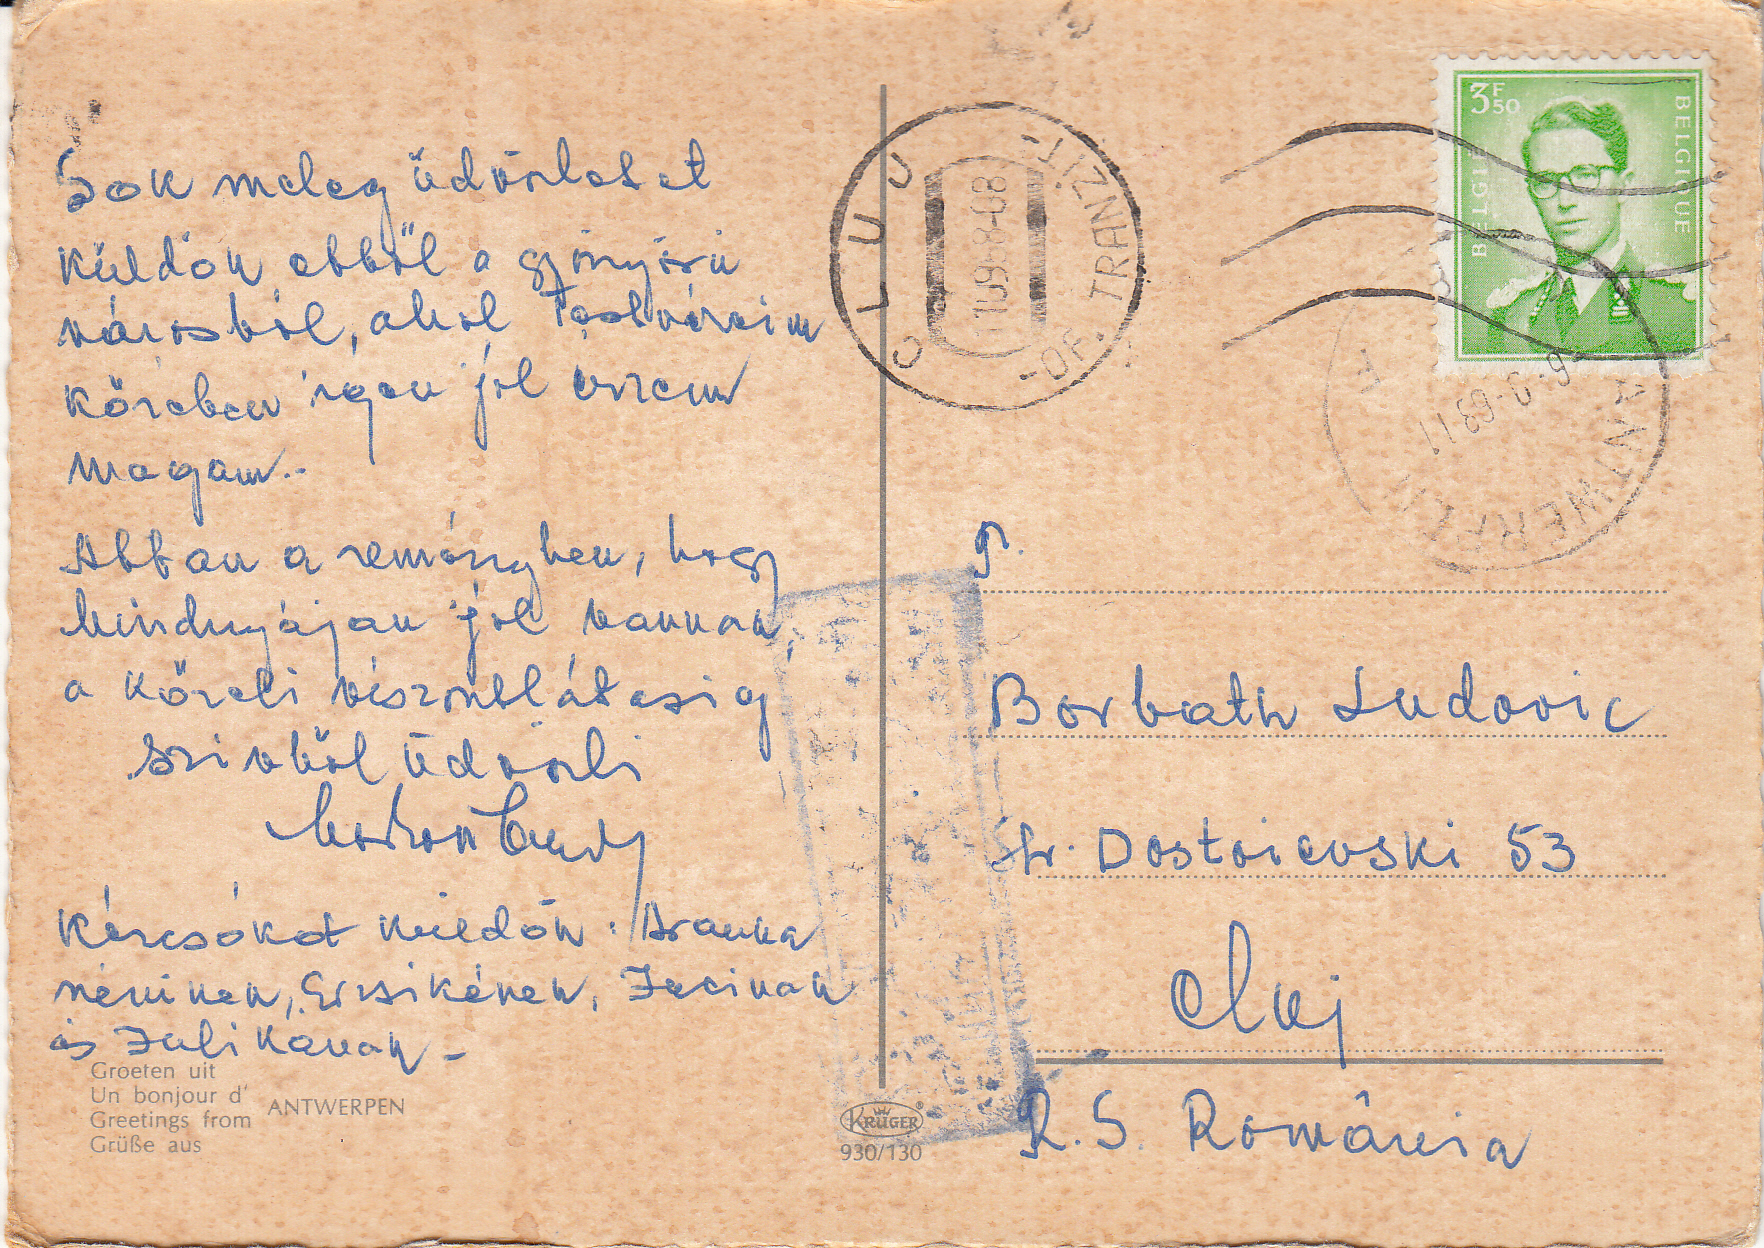 Sok meleg üdvözletet
küldök ebből a gyönyörű
városból, ahol Testvéreim
körében igen jól érzem
magam..
Abban a reményben, hogy
mindnyájan jól vannak,
a közeli viszontlátásig
szívből üdvözli
Kézcsókot küldök. Aranka
néninek, Erzsikének, Jucinak
és Julikának -
Groeten uit
Un bonjour d'
Greetings from ANTWERPEN
Grüße aus
KRÜGER
930/130
CLUJ
-OF. TRANZIT-
3F50
BELGIË
BELGIQUE
ANTWERPEN
P.
Borbath Ludovic
str. Dostoievski 53
Cluj
R. S. România